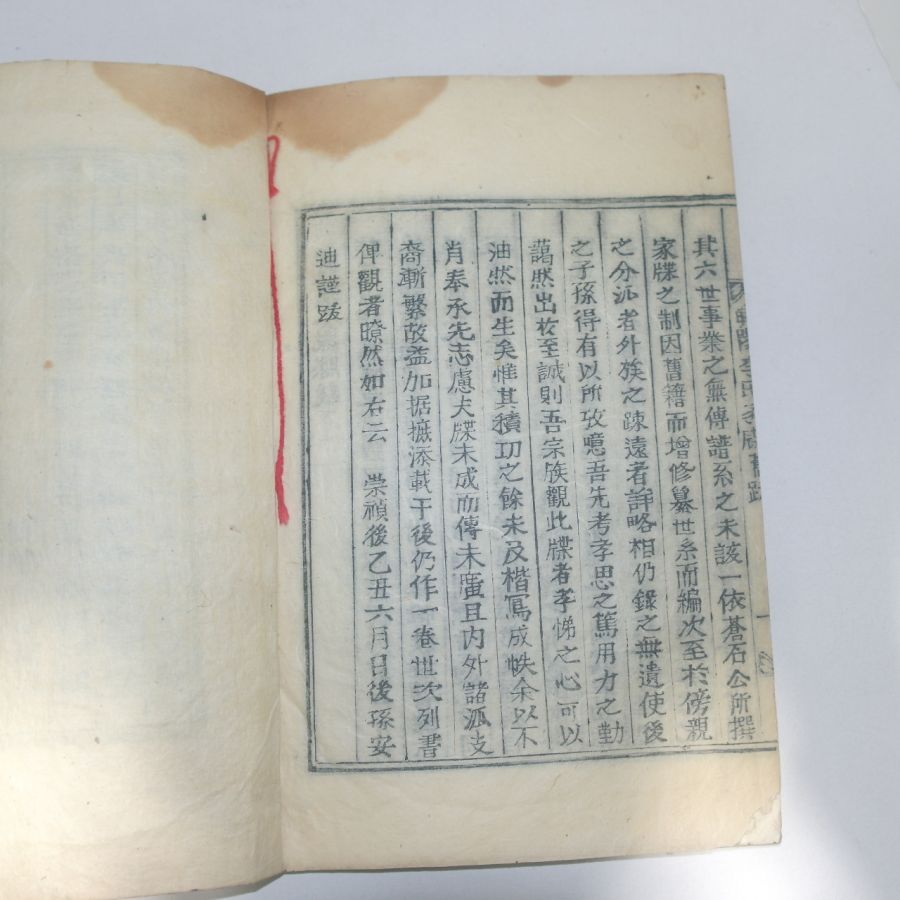 李氏家牒舊跋
其六世事業之無傳譜系之未該一依蒼石公所撰
家牒之制因舊籍而增修纂世系而編次至於傍親
之分派者外族之踈遠者詳略相仍錄之無遺使後
之子孫得有以所攷噫吾先考孝思之篤用力之勤
藹然出於至誠則吾宗族觀此牒者孝悌之心可以
油然而生矣惟其積功之餘未及楷寫成帙余以不
肖奉承先志慮夫牒未成而傳未廣且內外諸派支
裔漸繁故益加据摭添載于後仍作一卷世次列書
俾觀者暸然如右云 崇禎後乙丑六月日後孫安
迪謹跋